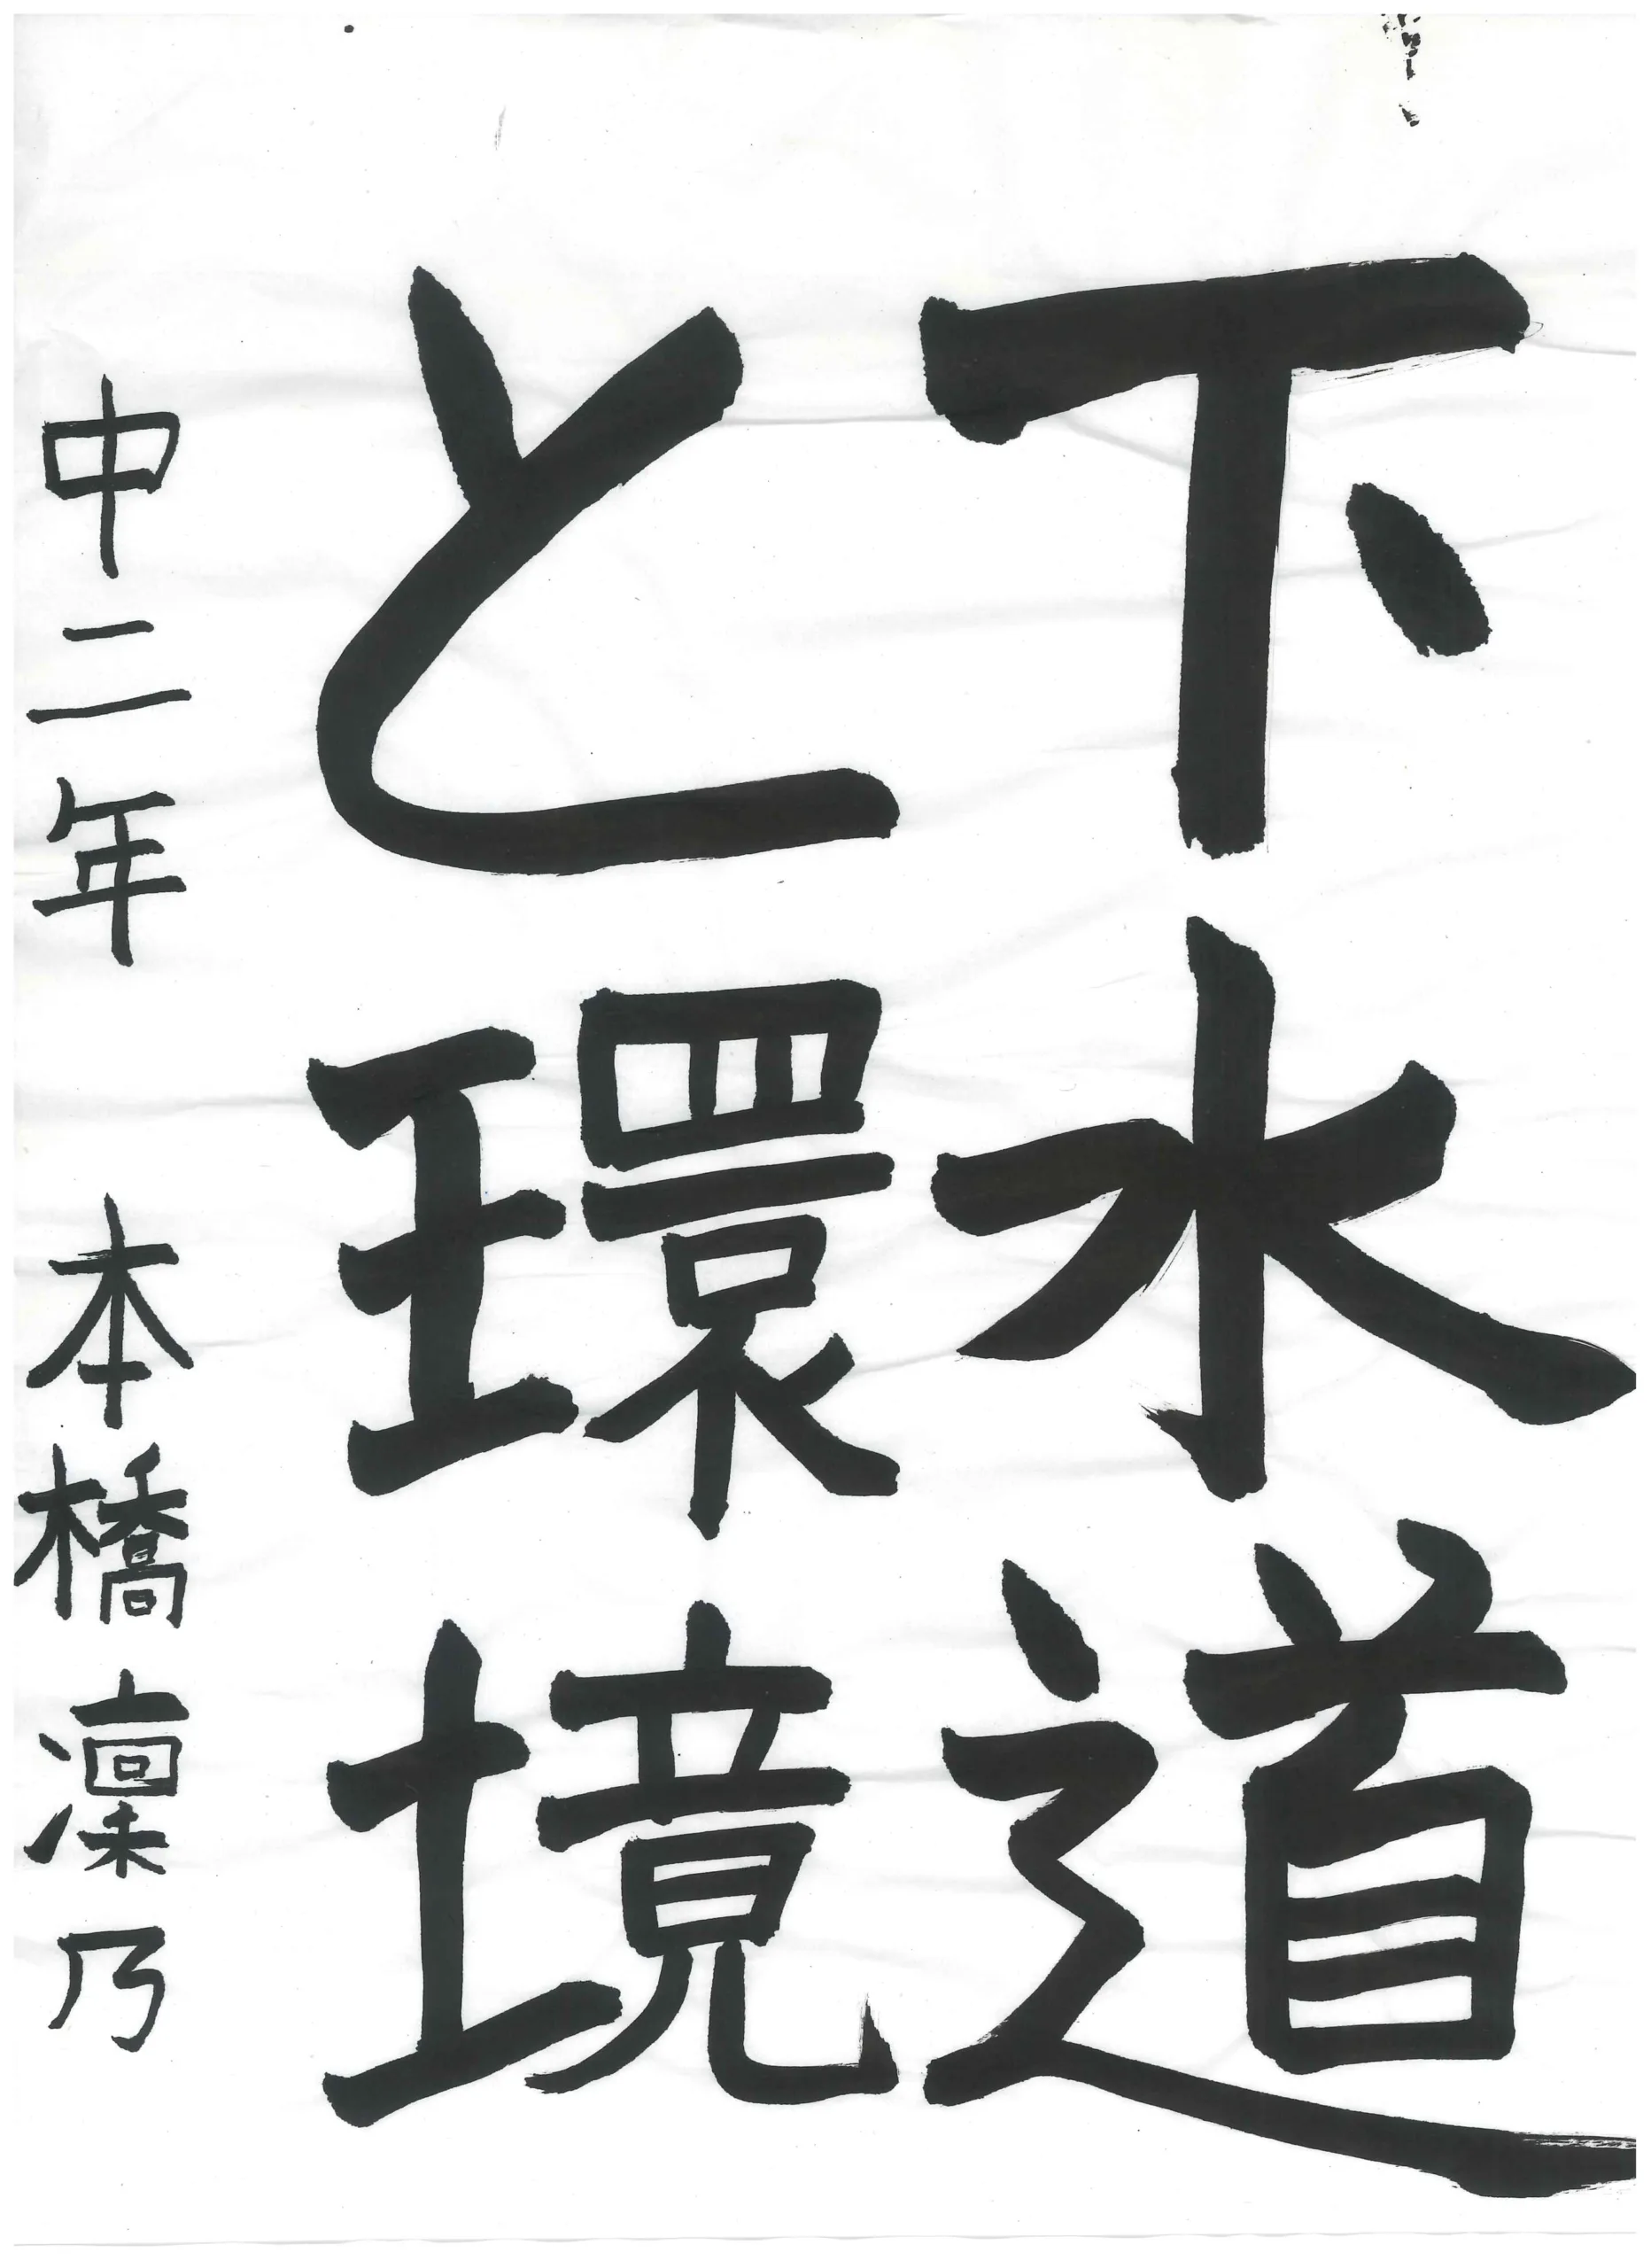 下水道
と環境
中二年 本橋凜乃